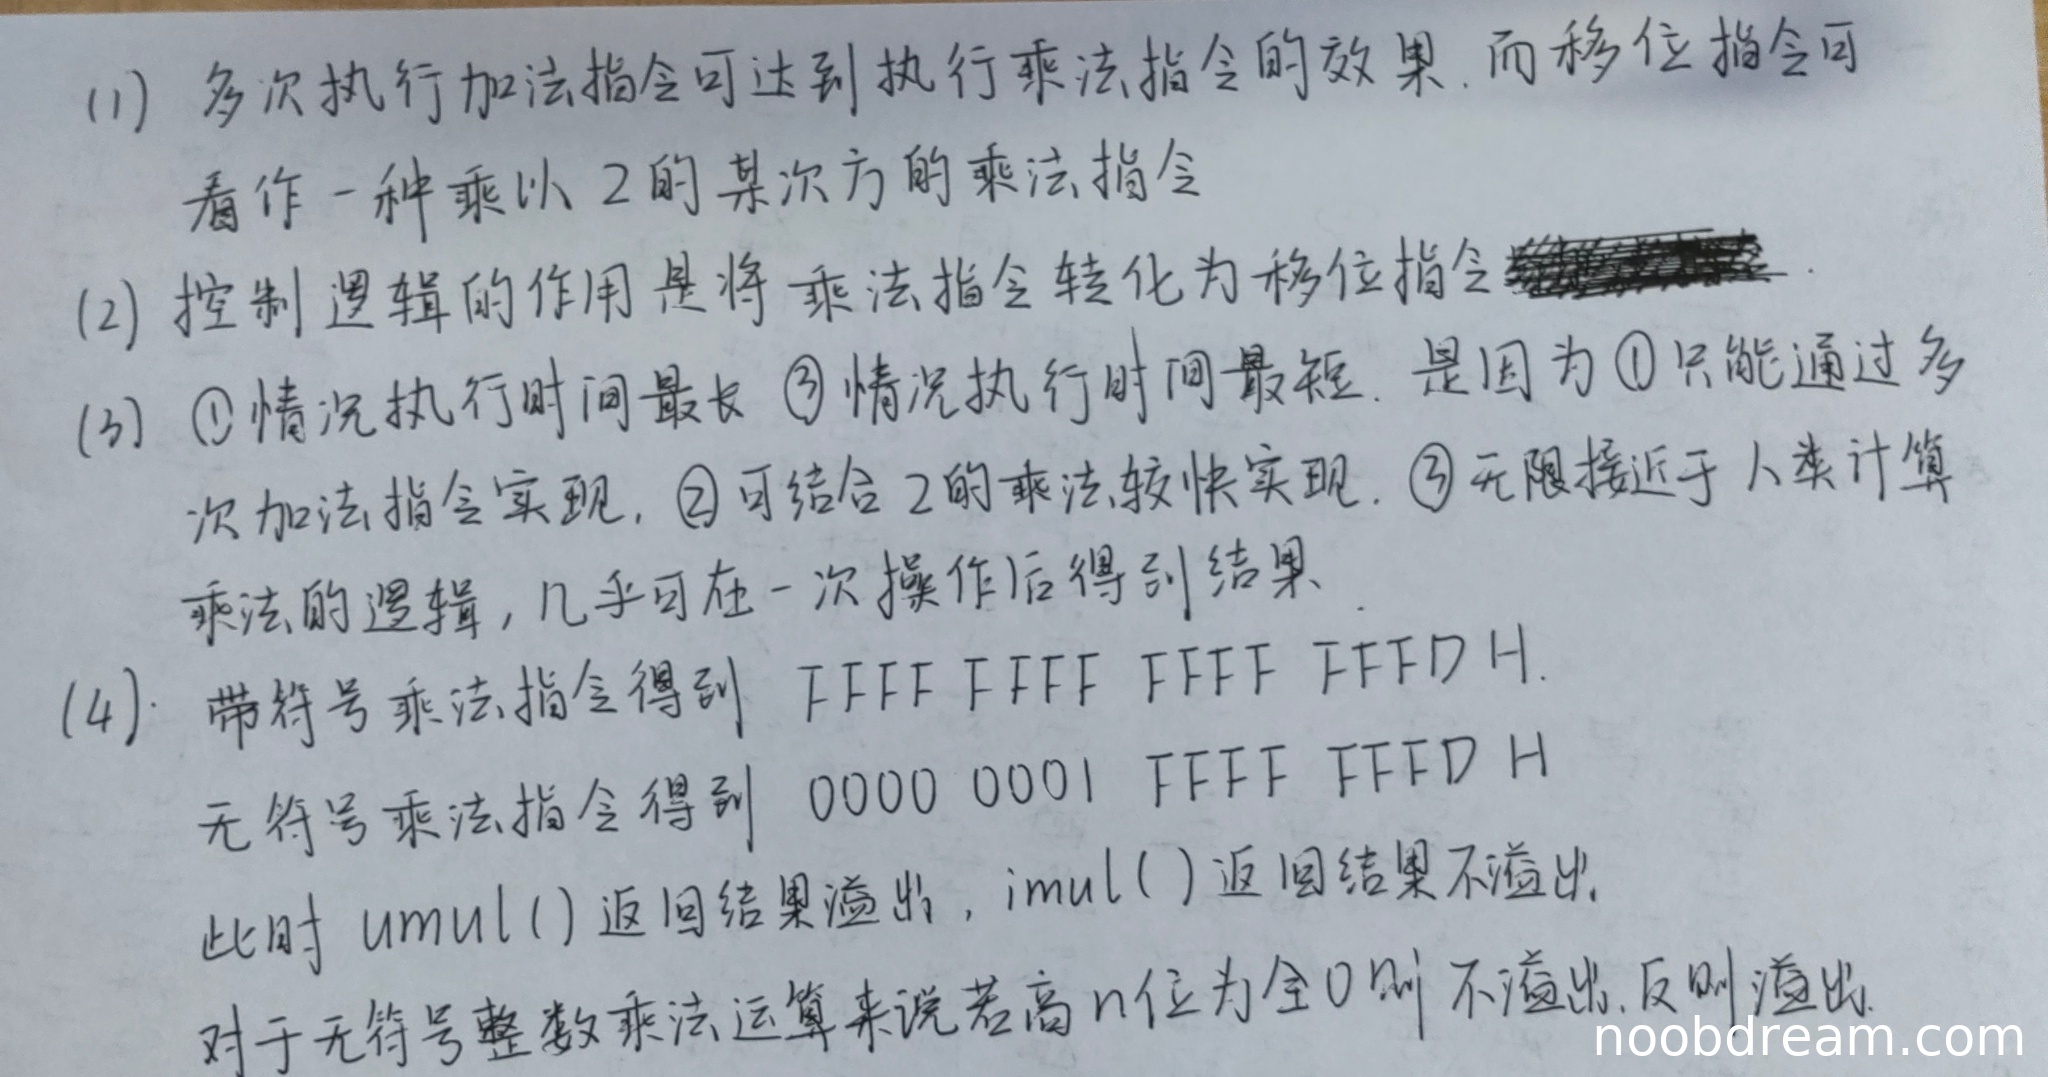 (1) 多次执行加法指令可达到执行乘法指令的效果.而移位指令可
看作一种乘以2的某次方的乘法指令
(2) 控制逻辑的作用是将乘法指令转化为移位指令.
(3) ①情况执行时间最长 ③情况执行时间最短. 是因为①只能通过多
次加法指令实现, ②可结合2的乘法较快实现. ③无限接近于人类计算
乘法的逻辑, 几乎可在一次操作后得到结果.
(4). 带符号乘法指令得到 FFFF FFFF FFFF FFFD H.
无符号乘法指令得到 0000 0001 FFFF FFFD H
此时 umul()返回结果溢出, imul()返回结果不溢出.
对于无符号整数乘法运算来说若高n位为全0则不溢出.反则溢出.
noobdream.com